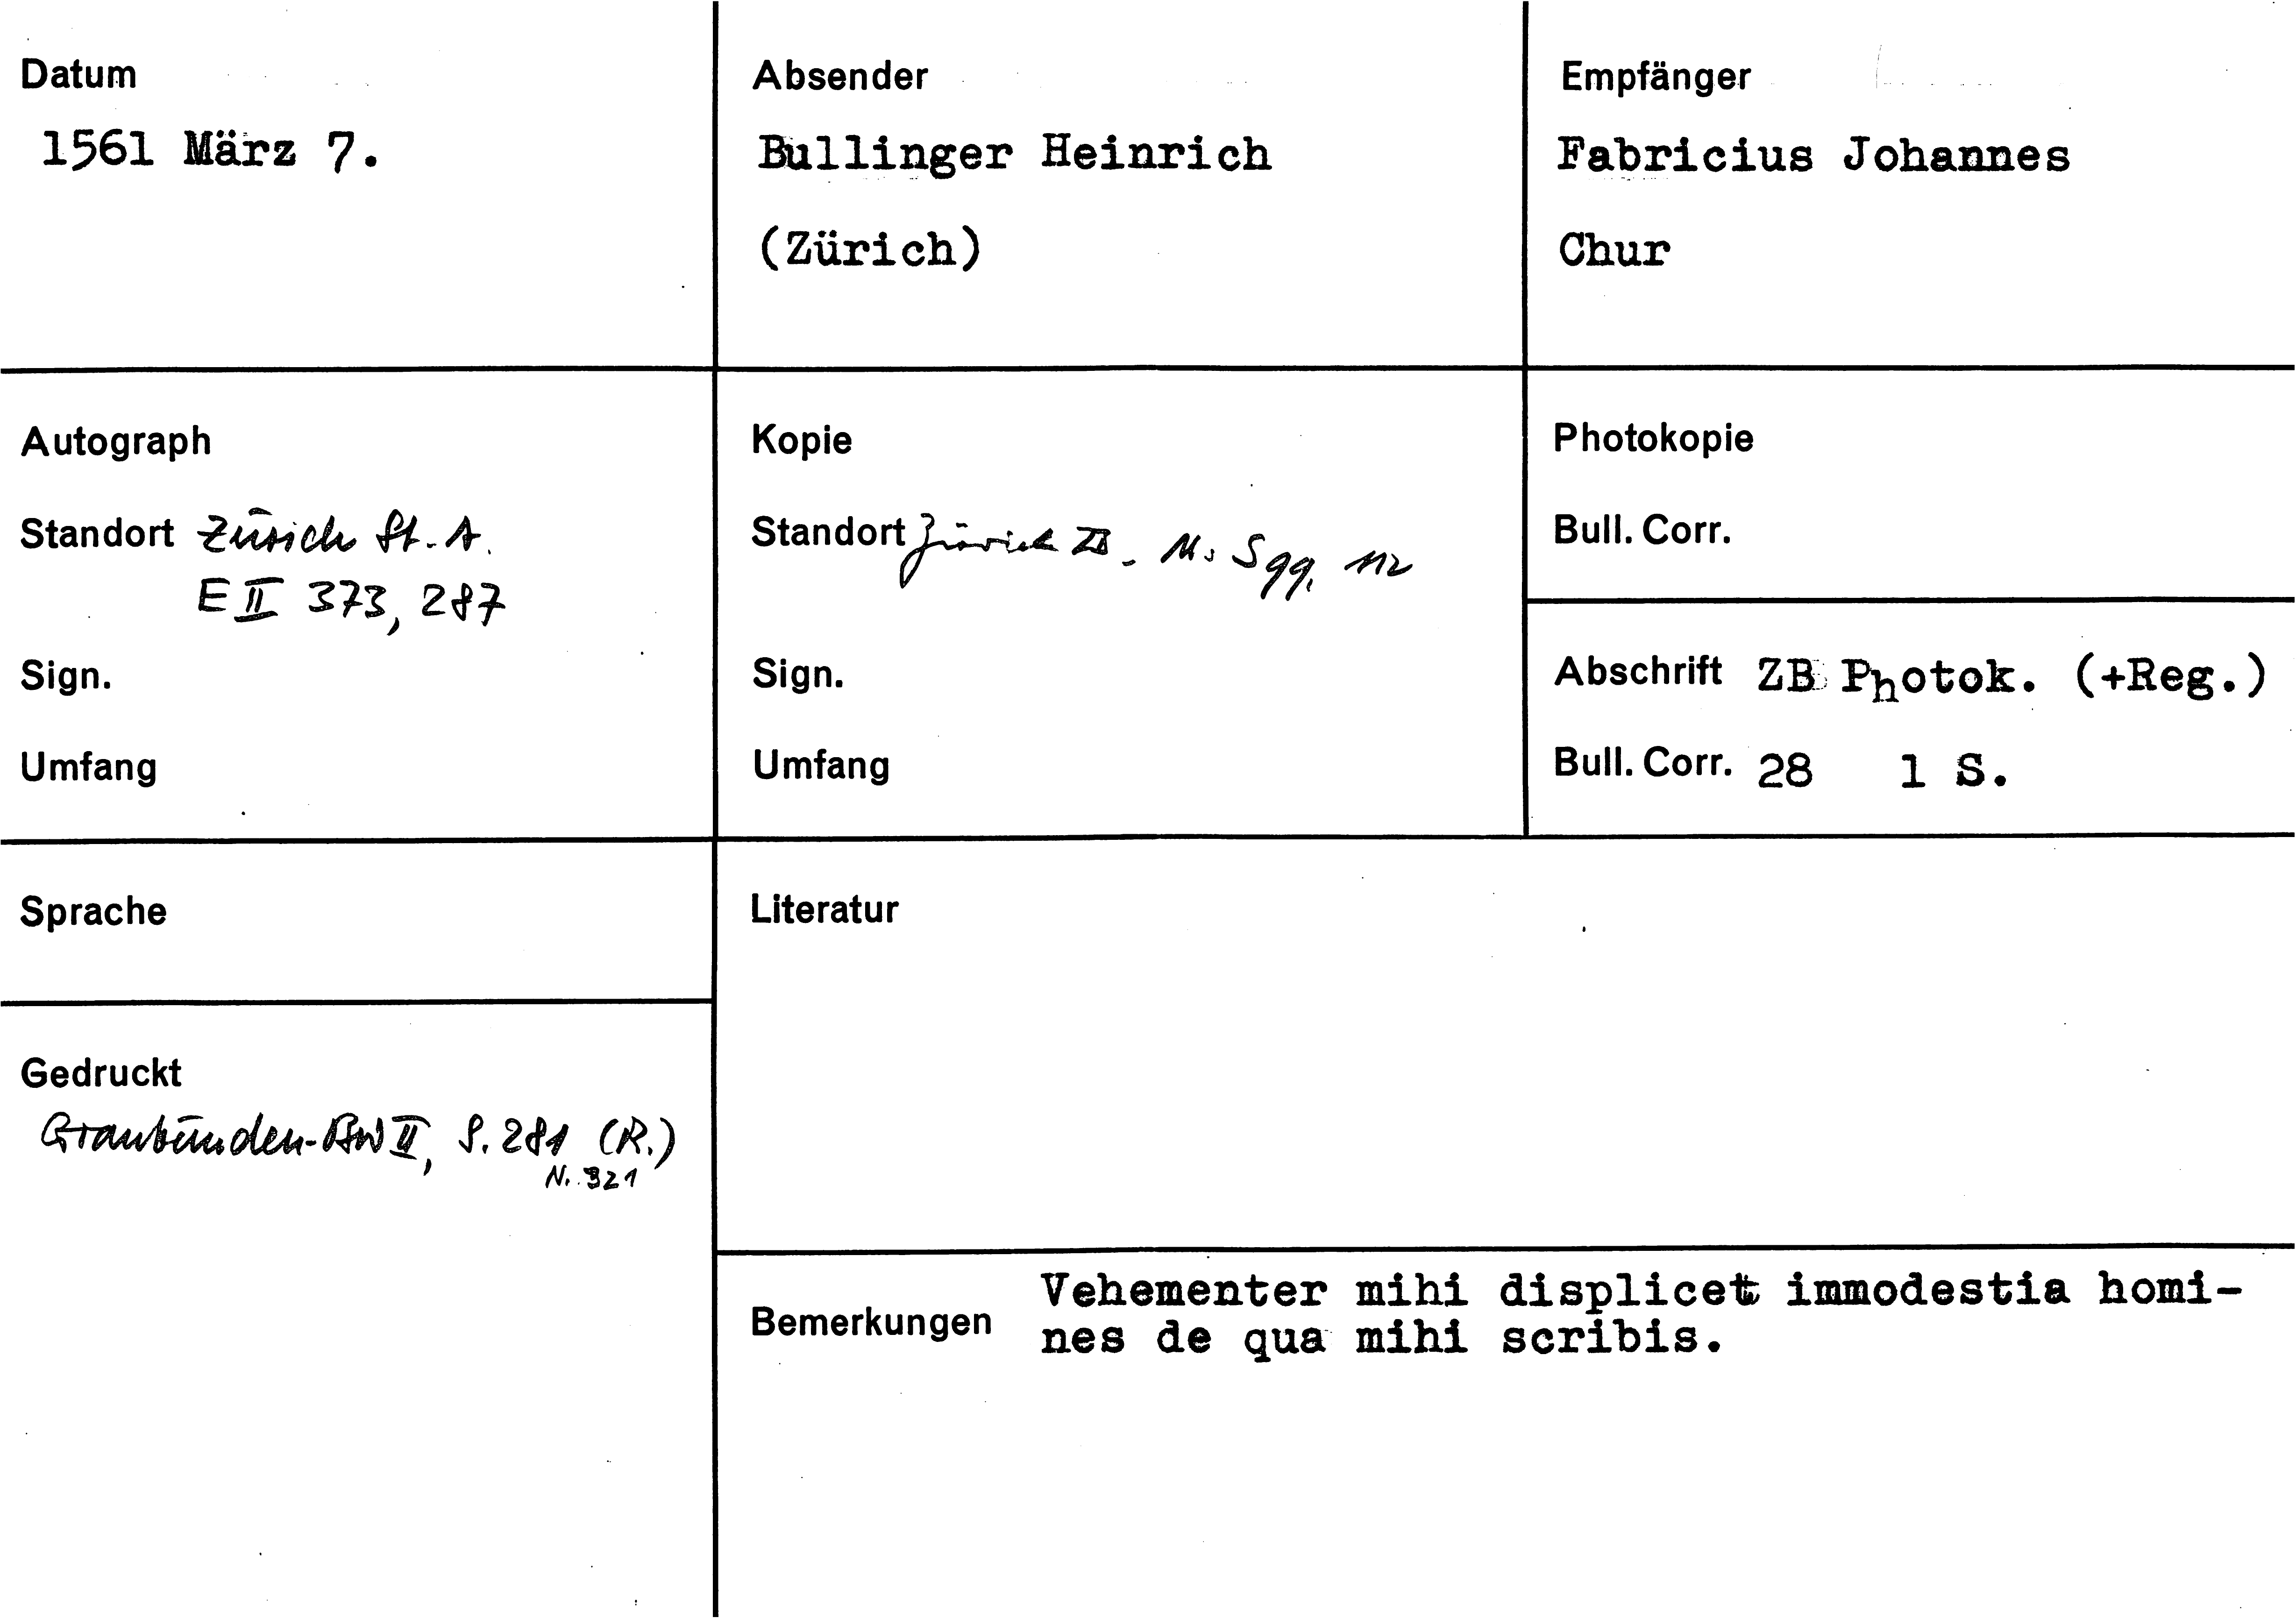 Datum
1561 März 7.
Absender
Bullinger Heinrich
(Zürich)
Empfänger
Fabricius Johannes
Chur
Autograph
Standort Zürich St. A.
E II 373, 287
Sign.
Umfang
Kopie
Standort Zürich ZB. Ms S gg. 112
Sign.
Umfang
Photokopie
Bull. Corr.
Abschrift ZB Photok. (+Reg.)
Bull. Corr. 28 1 S.
Sprache
Literatur
Gedruckt
Graubünden-BW II, S. 281 (R.)
N. 321
Bemerkungen
Vehementer mihi displicet immodestia homi-
nes de qua mihi scribis.